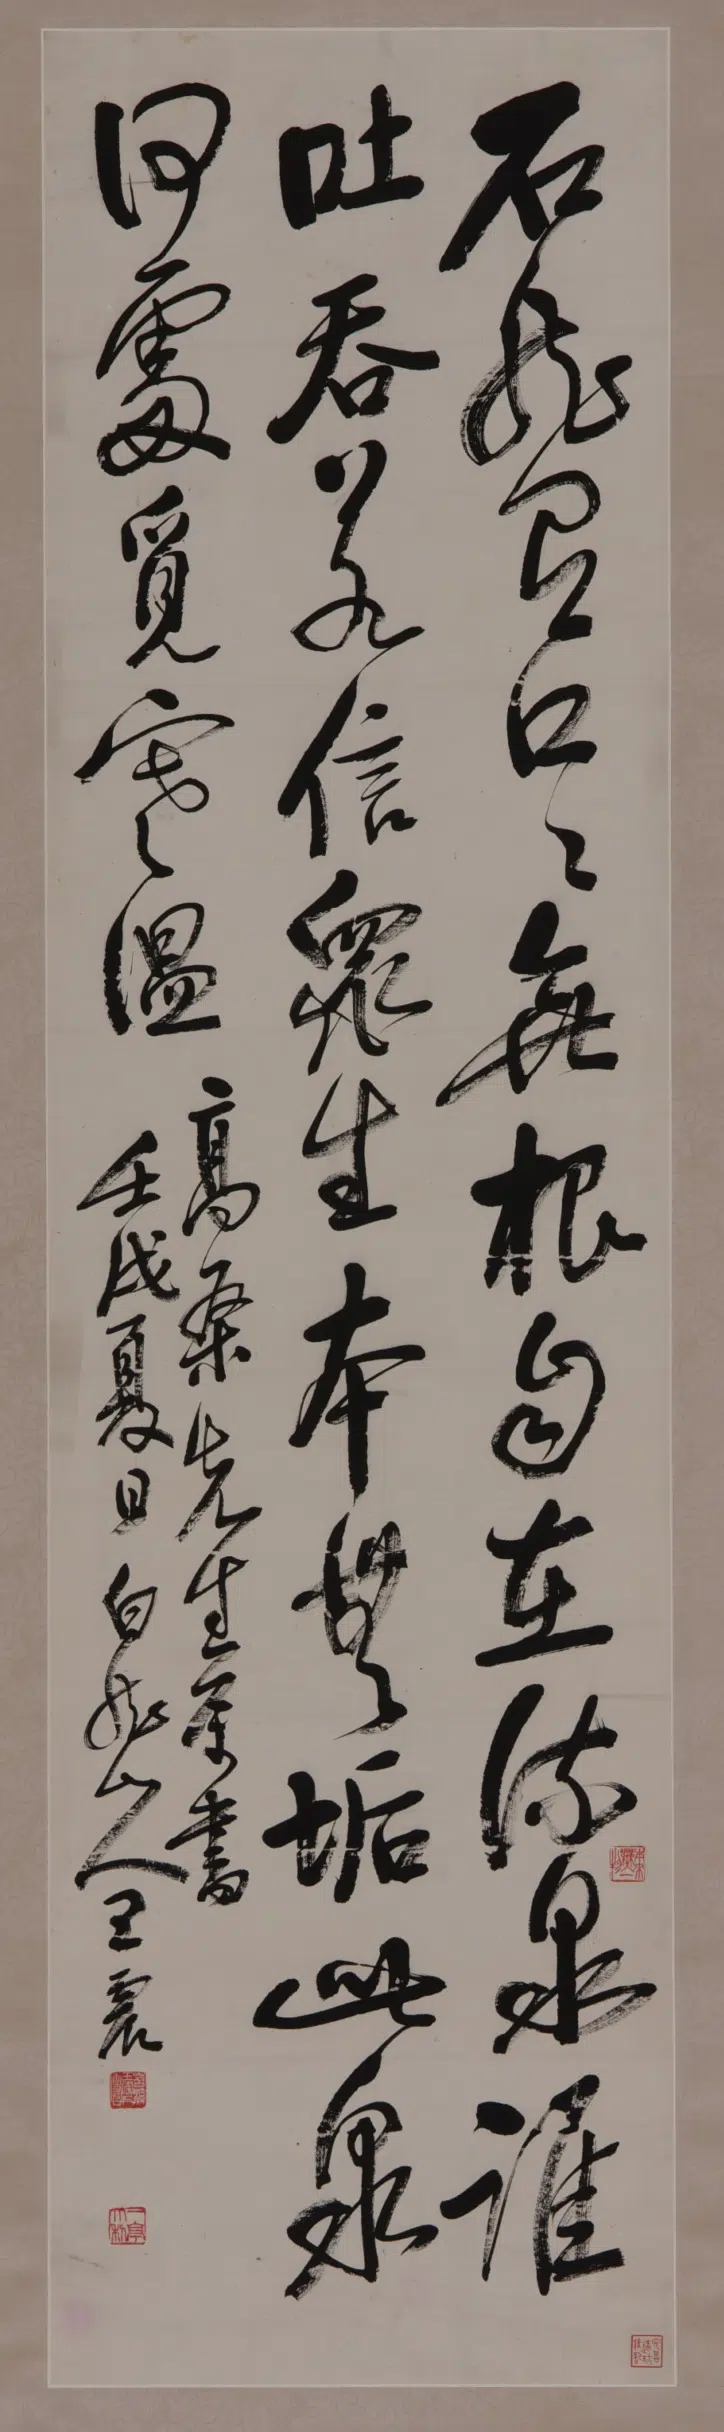 石龍有口〻無根自在流泉誰
吐吞若信眾生本無垢此泉
何處覓寒溫
高桑先生屬書
壬戌夏日白龍山人王震